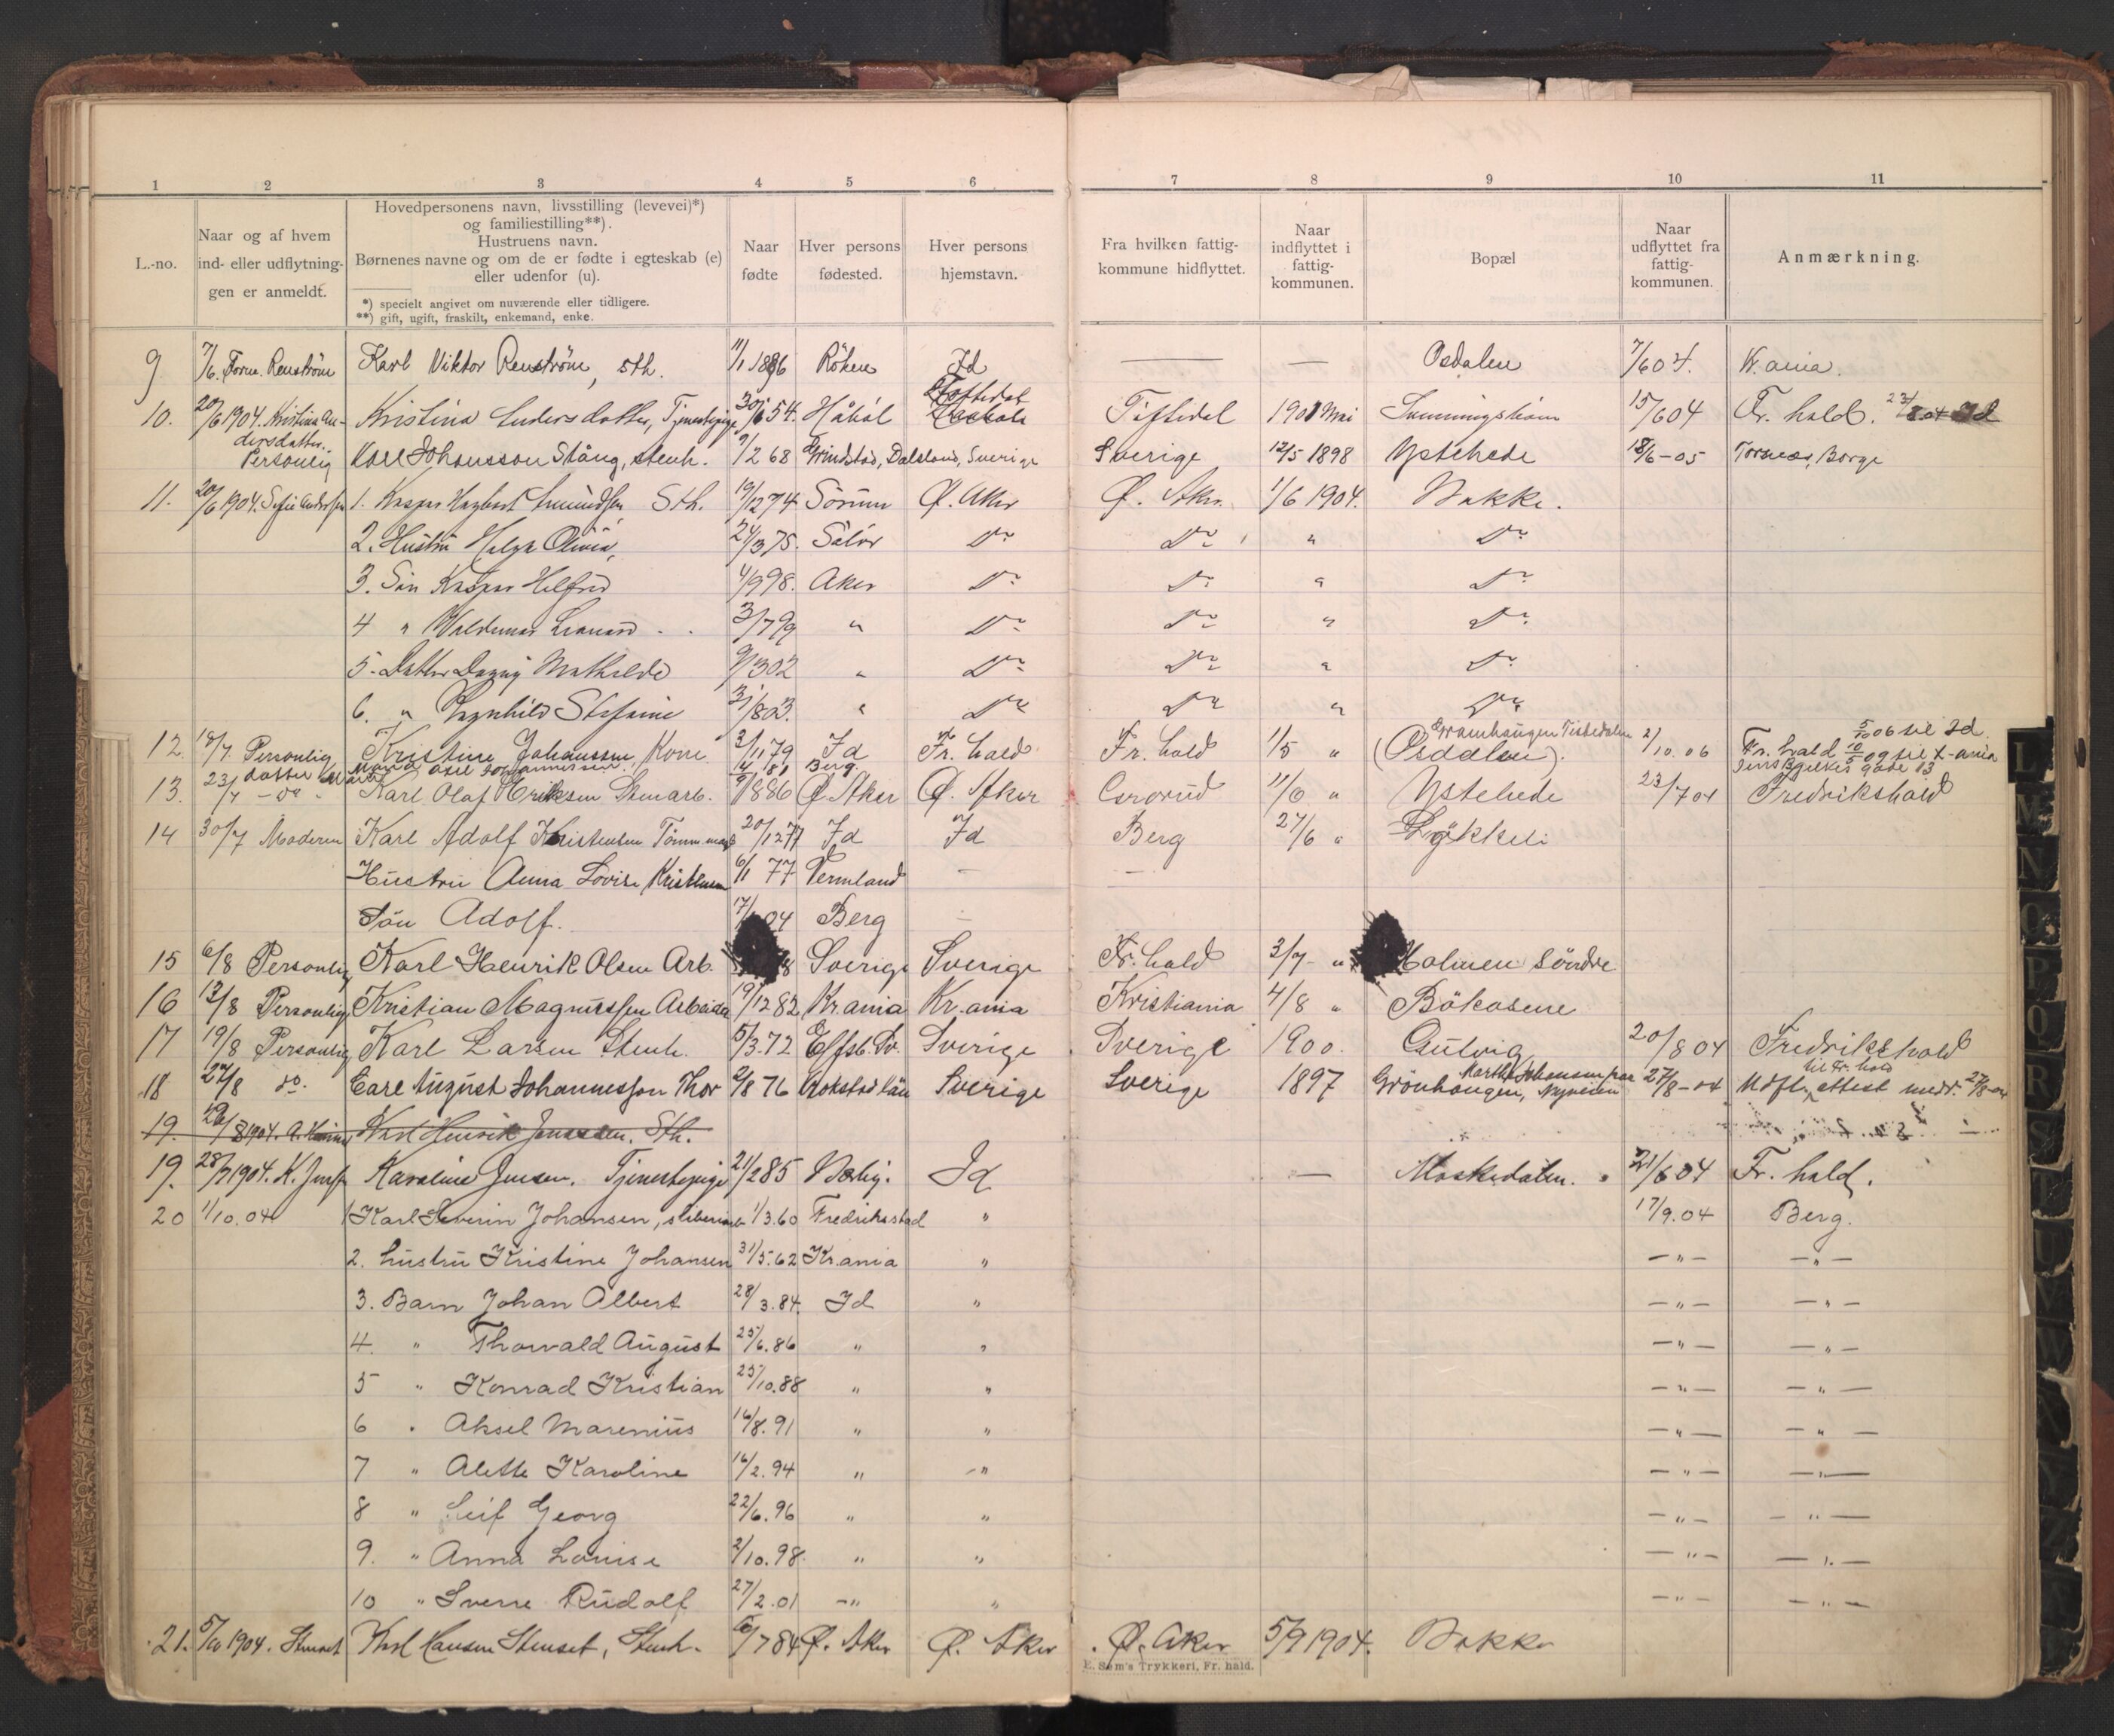 1 2 3 4 5 6 7 8 9 10 11
L.-no.
Naar og af hvem
ind- eller udflytnin-
gen er anmeldt.
Hovedpersonens navn, livsstilling (levevei)*)
og familiestilling**).
Hustruens navn.
Børnenes navne og om de er fødte i egteskab (e)
eller udenfor (u).
*) specielt angivet om nuværende eller tidligere.
**) gift, ugift, fraskilt, enkemand, enke.
Naar
fødte
Hver persons
fødested.
Hver persons
hjemstavn.
Fra hvilken fattig-
kommune hidflyttet.
Naar
indflyttet i
fattig-
kommunen.
Bopæl
Naar
udflyttet fra
fattig-
kommunen.
Anmærkning.
9 7/6. Renström Karl Viktor Renström, sth. 11/1 1886 Id — — Osdalen 7/6 04. Kr.ania.
10. 20/6 1904. Kristina An- Kristina Andersdatter, Tjenestepige 30/6 54. Håbol Töftedal Töftedal 1901 Mai 15/6 04 Fr. hald.
dersdatter.
Personlig Karl Johansson Stång, stenh. 9/2 68 Grindstad, Dalsland, Sverige Sverige 12/5 1898 Ystehede 18/6-05 Torsnes, Borge
11. 20/6 1904. Sofie Andersen 1. Kaspar Amundsen Sth. 19/12 74 Sörum Ø. Aker Ø. Aker 1/6 1904. Bakke.
2. Hustru Helga Olivia, 24/3 75. Solör Do Do " Do
3. Sön Kaspar Helfred 4/9 98. Aker Do Do " Do
4 " Valdemar Leonard 3/7 99 " Do Do " Do
5. Datter Dagny Mathilde 9/3 02 " Do Do " Do
6. " Ragnhild Stefanie 31/8 03. " Do Do " Do
12. 18/7 Personlig Kristine Johanssen, Kone 3/11 79 Id Fr. hald Fr. hald 1/5 " (Osdalen). 2/10.06 Fr. hald
Grönhaugen Tistedalen
5/10 06 til Id.
13. 23/7 - do - Karl Olaf Eriksen Stenarb. 9/1 886 Ø. Aker Ø. Aker Grorud 11/6 " Ystehede 23/7 04 Fredrikshald
14 30/7 Moderen Karl Adolf Kristensen Tömm.mand 20/12 77 Id Id Berg 27/6 " Lökkeli
Hustru Anna Lovise Kristensen 6/1 77 Vermland — —
Sön Adolf. 04 Berg —
15 6/8 Personlig Karl Henrik Olsen Arb. Sverige Sverige Fr. hald 3/7 " Holmen Söndre
16 13/8 Personlig Kristian Magnussen Arbeider 19/12 82 Kr.ania Kr.ania Kristiania 4/8 " Bökåsene
17 19/8 Personlig Karl Larsen Stenh. 5/3.72 Elfsb. Sv. Sverige Sverige 1900. Gutvig 20/8 04 Fredrikshald
18 27/8 do. Carl August Johannesson Thor 2/8 76 Sverige Sverige 1897 Grönhaugen, Nyveien 27/8-04 Udfl. attest medr. 27/8-04
til Fr. hald
19. 26/8 1904. Karl Henrik Jonassen. Sth.
19. 28/7 1904. K. Jensen Karoline Jensen. Tjenestepige 21/2 85 Id — Moskedalen. 21/6 04 Fr. hald.
20 1/10.04 1 Karl Severin Johansen, sliberiarb. 1/3.60 Fredriksstad " 17/9.04 Berg.
2. hustru Kristine Johansen 31/5.62 Kr.ania " — " — — " —
3. Barn Johan Albert 28/3.84. Id " — " — — " —
4. " Thorvald August 25/6.86 " " — " — — " —
5 " Konrad Kristian 25/10.88 " " — " — — " —
6 " Aksel Marenius 16/8.91 " " — " — — " —
7 " Alette Karoline 16/2.94 " " — " — — " —
8 " Leif Georg 22/6.96 " " — " — — " —
9. " Anna Louise 2/10.98 " " — " — — " —
10 " Sverre Rudolf 27/2.01 " " — " — — " —
21. 5/10 1904. Stenset Karl Hansen Stenset, Stenh. 6/7 84 Ø. Aker Ø. Aker Ø. Aker 5/9 1904. Bakke
E. Sem's Trykkeri, Fr. hald.
L M N O P R S T U V W